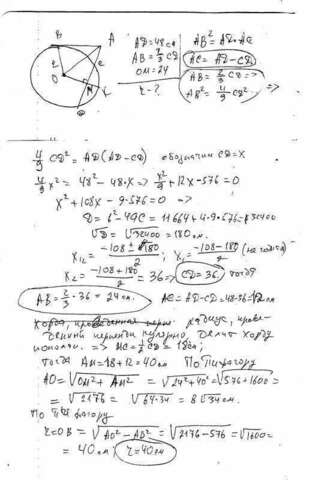 B A
r c
O
M
K
D
AD=48см
AB=2/3 CD
OM=24
r-?
AB²=AD·AC
AC=AD-CD
AB=2/3 CD =>
AB²=4/9 CD² =>
4/9 CD²=AD(AD-CD) обозначим CD=X
4/9 X²=48²-48·X => X²/9+12X-576=0
X²+108X-9·576=0 =>
D=b²-4ac=11664+4·9·576=32400
√D=√32400=180см.
X₁,₂=(-108±180)/2; X₁=(-108-180)/2 (не годится)
X₂=(-108+180)/2=36 => CD=36 тогда
AB=2/3·36=24см. AC=AD-CD=48-36=12см
хорда, радиус, прове-
дённый перпендикулярно делит хорду
пополам. => MC=1/2 CD=18см;
тогда AM=18+12=40см По Пифагору
AO=√OM²+AM²=√24²+40²=√576+1600=
=√2176=√64·34=8√34см.
По Пифагору
r=OB=√AO²-AB²=√2176-576=√1600=
=40см; r=40см